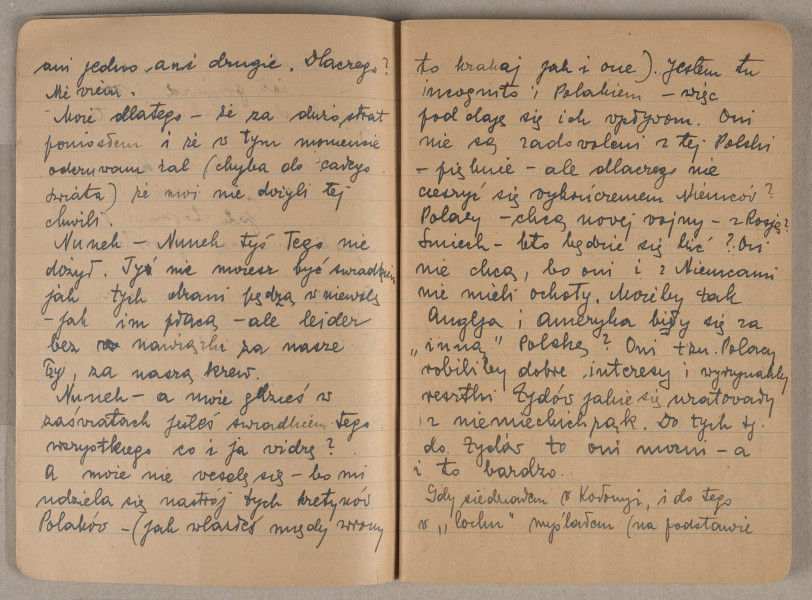 ani jedno ani drugie. Dlaczego?
Nie wiem.
Może dlatego – że za dużo strat
poniosłem i że w tym momencie
oderwam żal (chyba do całego
świata) że moi nie dożyli tej
chwili.
Nunek – Nunek tyś tego nie
dożył. Tyś nie możesz być świadkiem
jak tych drani pędzą w niewolę
– jak im płacą – ale leider
bez nawiązki za nasze
łzy, za naszą krew.
Nunek – a może gdzieś w
zaświatach jesteś świadkiem tego
wszystkiego co i ja widzę?
A może nie weselę się – bo mi
udziela się nastrój tych kretynów
Polaków – (jak wlazłeś między wrony
to krakaj jak i one). Jestem tu
incognito i Polakiem – więc
poddaję się ich wpływom. Oni
nie są zadowoleni z tej Polski
– pięknie – ale dlaczego nie
cieszyć się wykończeniem Niemców?
Polacy – chcą novej vojny – z Rosją?
Śmiech – kto będzie się bić? Oni
nie chcą, bo oni i z Niemcami
nie mieli ochoty. Możeby tak
Anglja i Ameryka biły się za
"inną" Polskę? Oni tzn. Polacy
robiliby dobre interesy i wyrzynaliby
resztki Żydów jakie się uratowały
z niemieckich rąk. Do tych tj.
do Żydów to oni mocni – a
i to bardzo.
Gdy siedziałem w Kołomyi, i do tego
w "lochu" myślałem (na podstawie